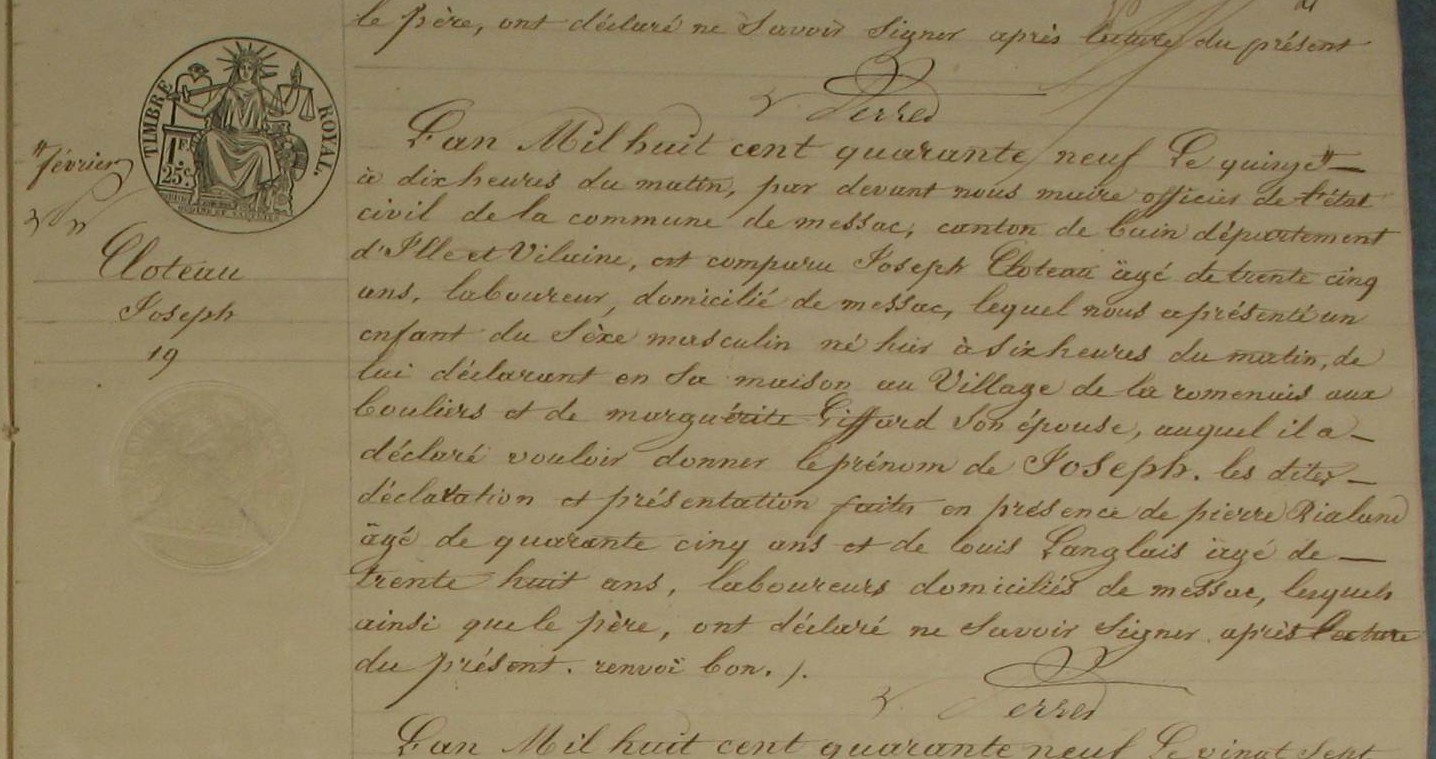 le père, ont déclaré ne Savoir Signer après lecture du présent
Ferred
TIMBRE ROYAL.
1F.
25c.
" février
Cloteau
Joseph
19
L'an Mil huit cent quarante neuf Le quinze " —
à dix heures du matin, par devant nous maire officier de l'état
civil de la commune de messac, canton de bain département
d'Ille et Vilaine, est comparu Joseph Cloteau âgé de trente cinq
ans, laboureur, domicilié de messac, lequel nous a présenté un
enfant du Sèxe masculin né hier à Six heures du matin, de
lui déclarant en Sa maison au Village de la romenais aux
bouliers et de marguérite Giffard Son épouse, auquel il a —
déclaré vouloir donner le prénom de Joseph. les dites —
déclaration et présentation faites en présence de pierre Rialand
âgé de quarante cinq ans et de louis Langlais âgé de —
trente huit ans, laboureurs domiciliés de messac, lesquels
ainsi que le père, ont déclaré ne Savoir Signer après lecture
du présent. renvoi bon. /.
Ferred
L'an Mil huit cent quarante neuf Le vingt Sept